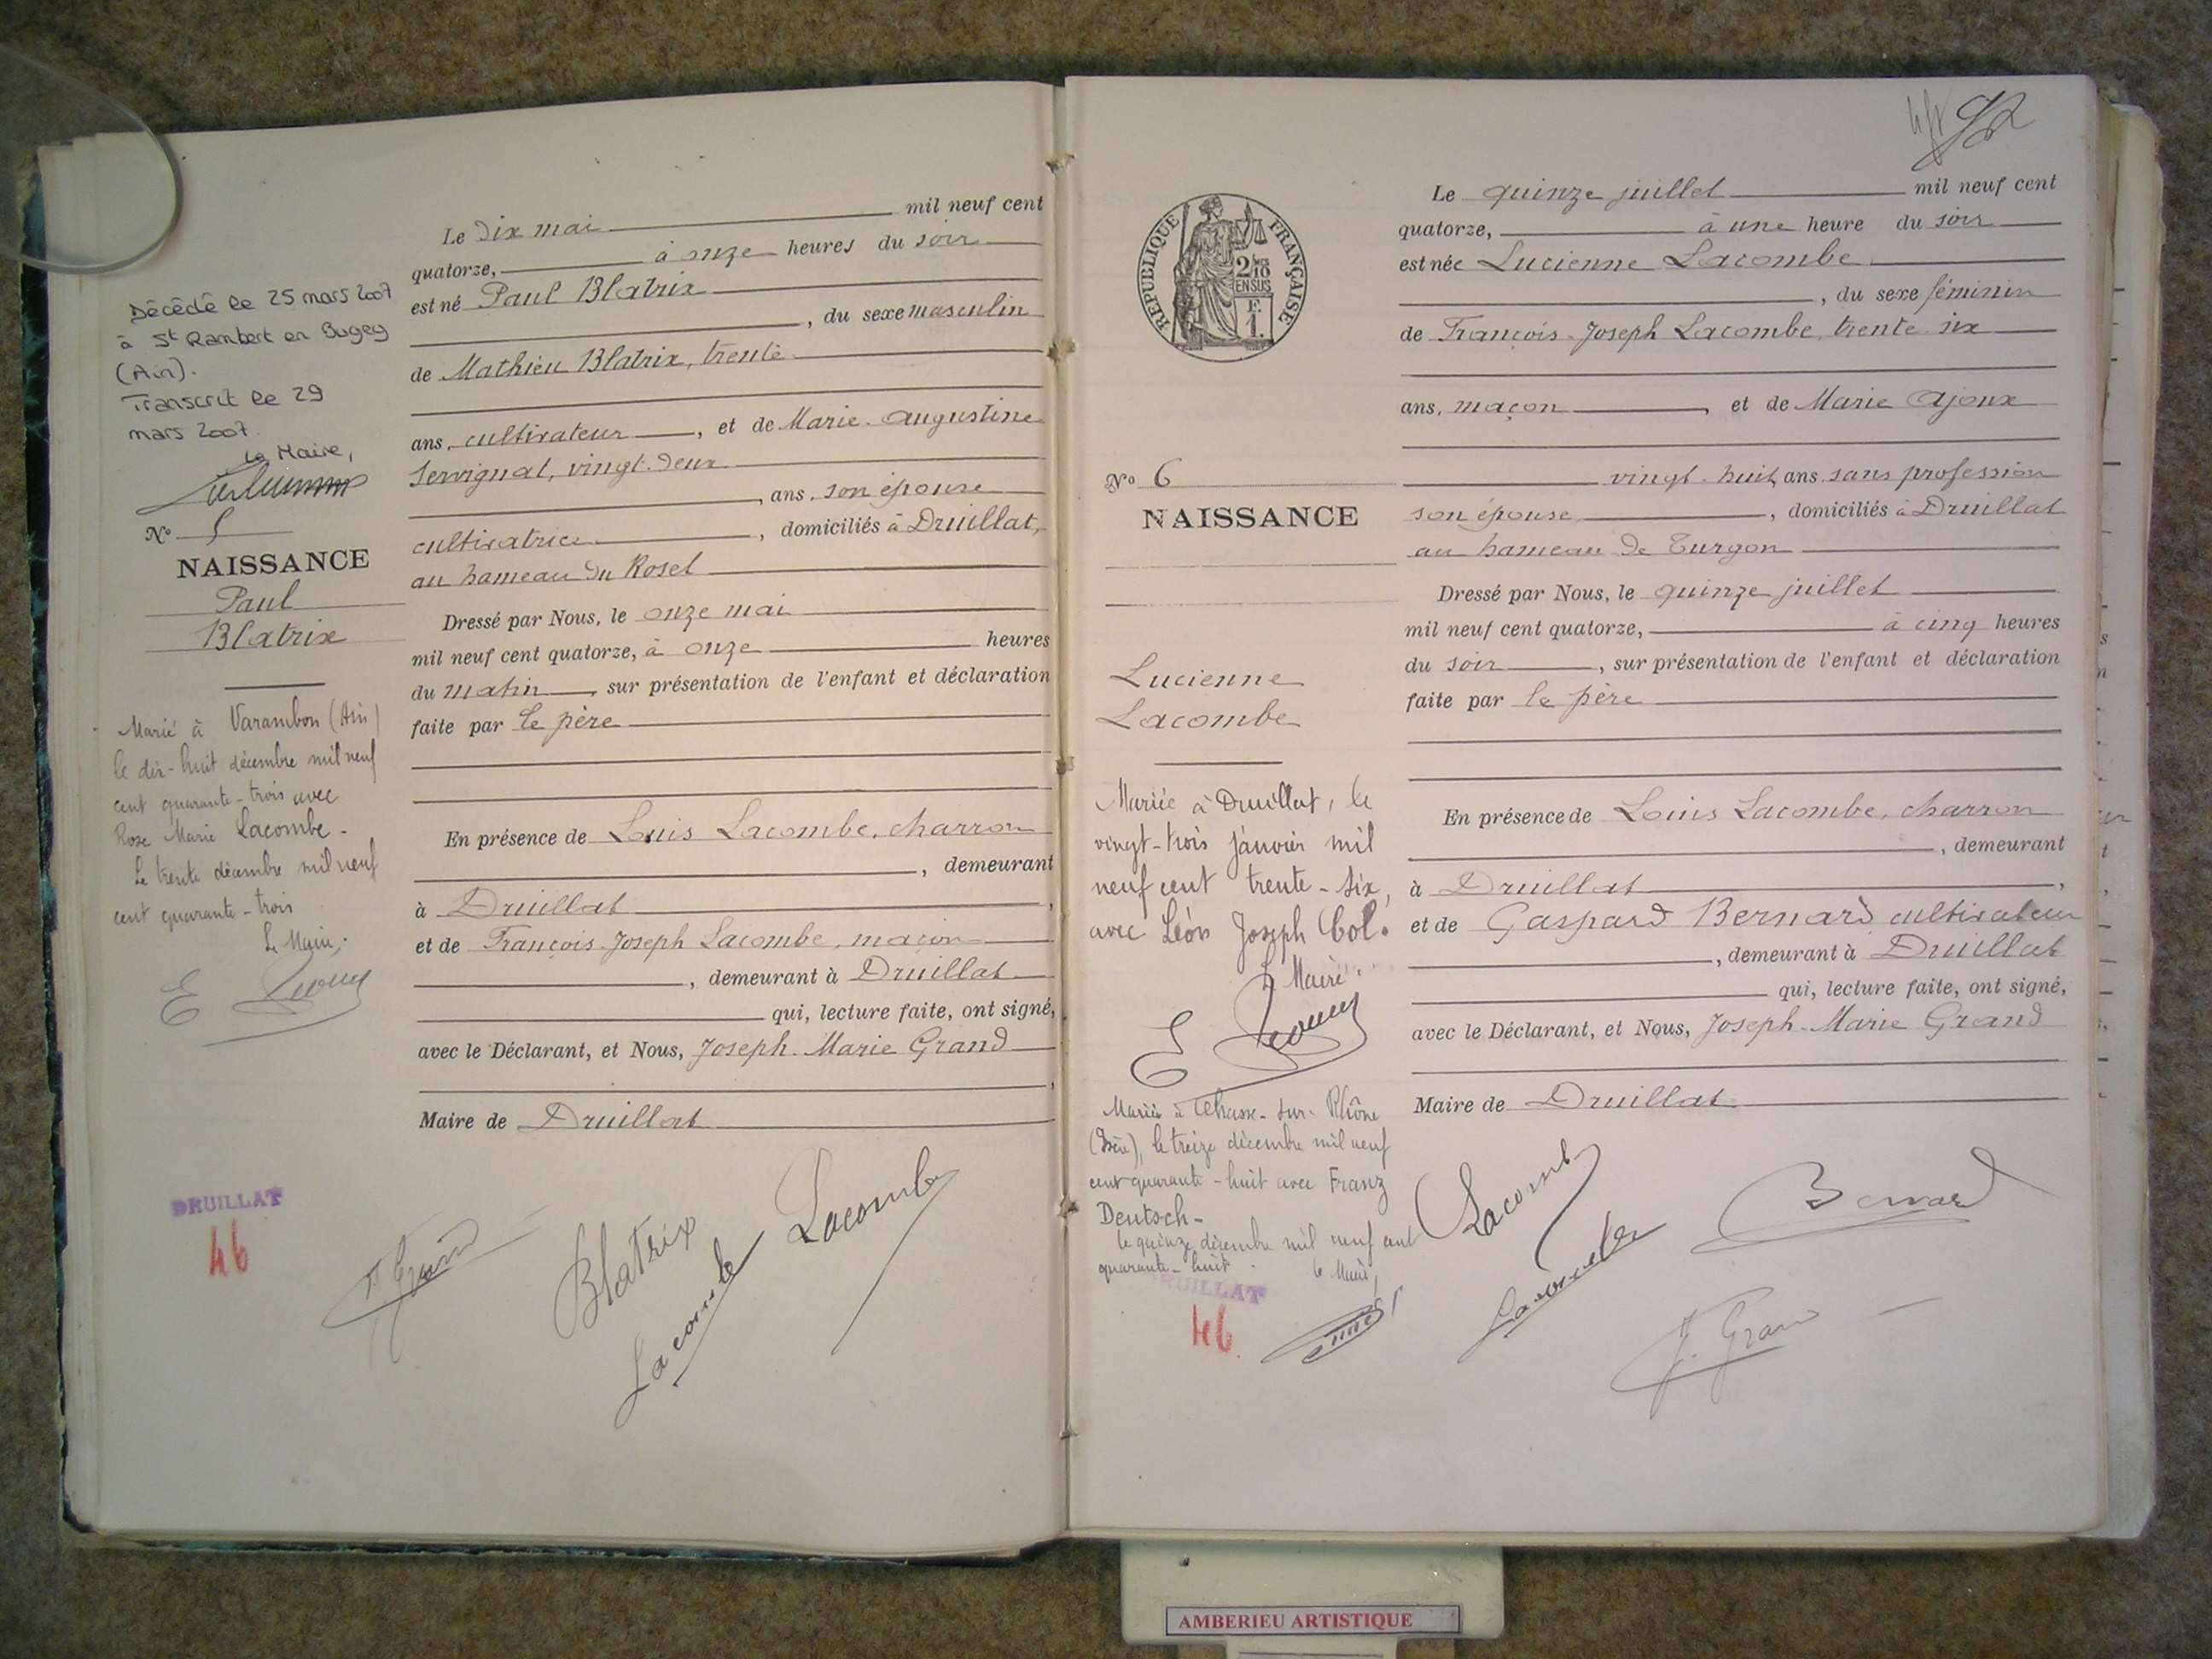 Décédé le 25 mars 2007
à St Rambert en Bugey
(Ain).
Transcrit le 29
mars 2007.
Le Maire,
No 5
NAISSANCE
Paul
Blatrix
Marié à Varambon (Ain)
le dix-huit décembre mil neuf
cent quarante-trois avec
Rose Marie Lacombe-
Le trente décembre mil neuf
cent quarante-trois
Le Maire,
DRUILLAT
46
Le dix mai mil neuf cent
quatorze, à onze heures du soir
est né Paul Blatrix
, du sexe masculin
de Mathieu Blatrix, trente
ans, cultivateur, et de Marie-Augustine
Servignat, vingt-deux
ans, son épouse
cultivatrice, domiciliés à Druillat,
au hameau du Roset
Dressé par Nous, le onze mai
mil neuf cent quatorze, à onze heures
du matin, sur présentation de l'enfant et déclaration
faite par le père
En présence de Louis Lacombe, charron
, demeurant
à Druillat,
et de François-Joseph Lacombe, maçon
, demeurant à Druillat
qui, lecture faite, ont signé,
avec le Déclarant, et Nous, Joseph-Marie Grand
,
Maire de Druillat
J. Grand
Blatrix
Lacombe
Lacombe
52
REPUBLIQUE FRANÇAISE
2/10
EN SUS
No 6
NAISSANCE
Lucienne
Lacombe
Mariée à Druillat, le
vingt-trois janvier mil
neuf cent trente-six,
avec Léon Joseph Col.
Le Maire
Mariée à Chasse-sur-Rhône
(Isère), le treize décembre mil neuf
cent quarante-huit avec Franz
Deutsch-
le quinze décembre mil neuf cent
quarante-huit.
le Maire,
DRUILLAT
46
Le quinze juillet mil neuf cent
quatorze, à une heure du soir
est née Lucienne Lacombe
, du sexe féminin
de François-Joseph Lacombe, trente-six
ans, maçon, et de Marie Ajoux
vingt-huit ans, sans profession
son épouse, domiciliés à Druillat
au hameau de Turgon
Dressé par Nous, le quinze juillet
mil neuf cent quatorze, à cinq heures
du soir, sur présentation de l'enfant et déclaration
faite par le père
En présence de Louis Lacombe, charron
, demeurant
à Druillat,
et de Gaspard Bernard cultivateur
, demeurant à Druillat
qui, lecture faite, ont signé,
avec le Déclarant, et Nous, Joseph-Marie Grand
Maire de Druillat
Lacombe
Lacombe
Bernard
J. Grand
AMBERIEU ARTISTIQUE